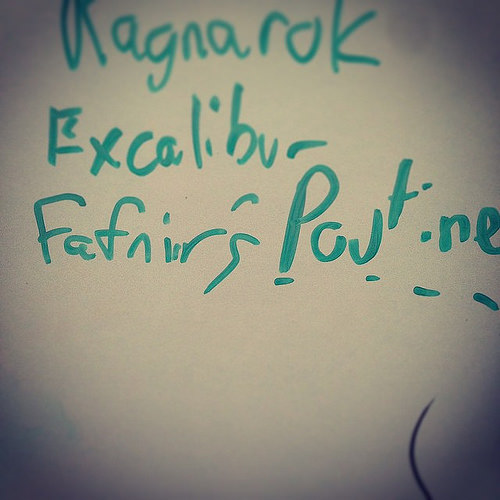 Ragnarok
Excalibur
Fafnir's Poutine